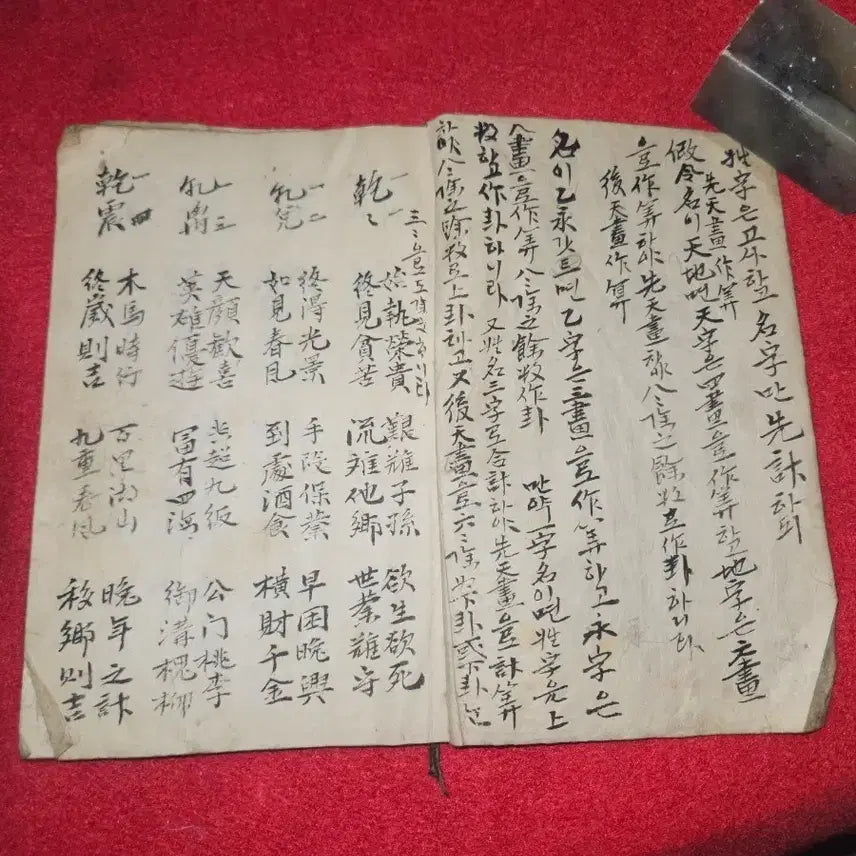 姓字은 고사하고 名字만 先計하되
先天畫作筭
假令名이 天地면 天字은 四畫으로 作筭하고 地字은 六畫
으로 作筭하야 先天畫 하야 八八除之餘數로 作卦하니라
後天畫作筭
名이 乙永갓트면 乙字은 三畫으로 作筭하고 永字은
八畫으로 作筭 八八除之餘數作卦 만약 一字名이면 姓字은 上
作卦하니라 又姓名三字로 合計하야 先天畫으로 計筭
하야 八八除之餘數로 上卦하고 又 後天畫으로 六六除
乾一
始執榮貴 艱難子孫 欲生欲死
終見貧苦 流離他鄉 世業難守
兌二
終得光景 手段保業 早困晚興
如見春風 到處酒食 橫財千金
三
天顔歡喜 超九級 公门桃李
英雄優遊 富有四海 御溝槐柳
乾一 震四
木馬時行 百里湖山 晚年之計
終歲則吉 九重春风 移鄉則吉